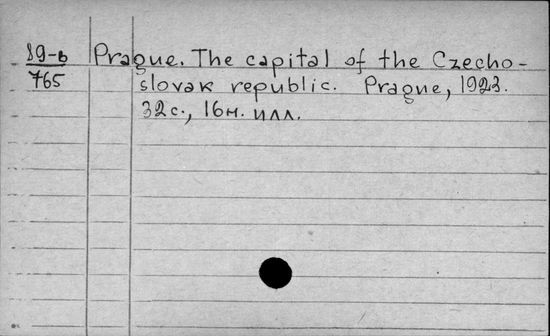 19-b Prague. The capital of the Czecho-
765 slovak republic. Prague, 1923.
32 с., 16 н. илл.